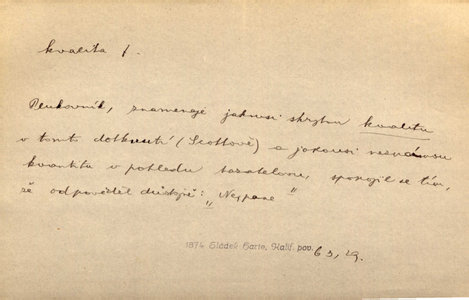 kvalita f.
Plukovník, znamenaje jakousi skrytou kvalitu
v tomto dotknutí (Scottově) a jakousi neznámou
kvantitu v pohledu tazatelovu, spokojil se tím,
že odpověděl důstojně: „Ne, pane"
1874 Sládek Harte, Kalif. pov. 63, 29.